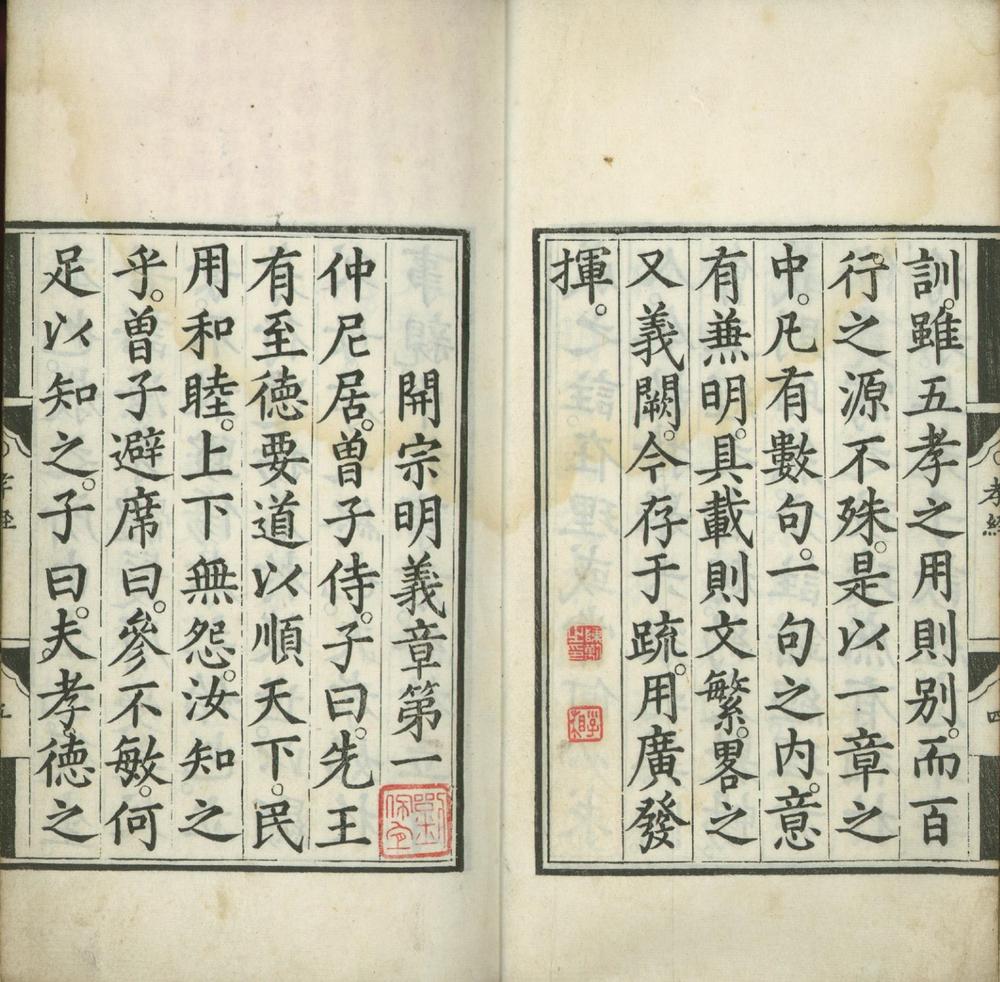 訓。雖五孝之用則别。而百
行之源不殊。是以一章之
中。凡有數句。一句之内。意
有兼明。具載則文繁。畧之
又義闕。今存于疏。用廣發
揮。
孝經
四
開宗明義章第一
仲尼居。曾子侍。子曰。先王
有至德要道以順天下。民
用和睦。上下無怨。汝知之
乎。曾子避席曰。參不敏。何
足以知之。子曰。夫孝。德之
孝經